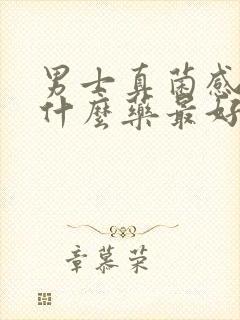 男士真菌感
什麼藥最好
章慕荣